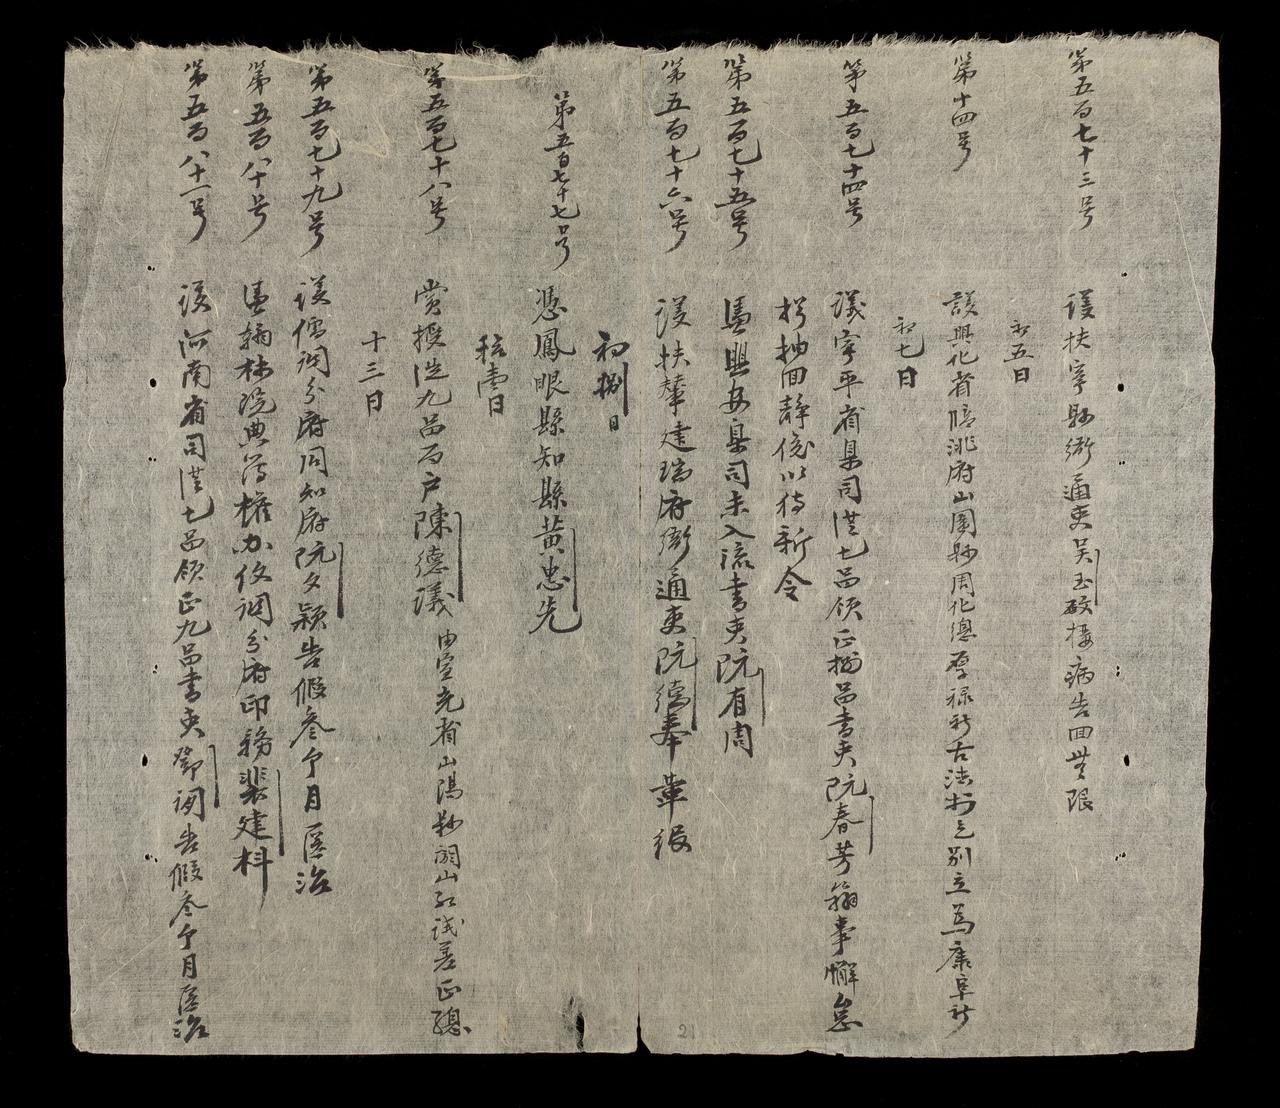 第五百七十三号 議扶寧縣衙通吏吴玉 接病告回無限
初五日
第十四号 議興化省臨洮府山圍縣周化總厚禄社古法村乞別立為康阜社
初七日
第五百七十四号 議寧平省臬司從七品領正捌品書吏阮春芳 事懈怠
拟抽回静俟以待新令
第五百七十五号 憑興安臬司未入流書吏阮有周
第五百七十六号 議扶輦建瑞府衙通吏阮德奉革役
初捌日
第五百七十七号 憑鳳眼縣知縣黄忠先
拾壹日
第五百七十八号 賞授從九品百户陳德議由宣光省山陽縣 山 試差正總
十三日
第五百七十九号 議儒調分府同知府阮文穎告假叁个月医治
第五百八十号 憑翰林院典簿權办攸調分府印務裴建料
第五百八十一号 議河南省司從七品領正九品書吏鄧 告假叁个月医治
21